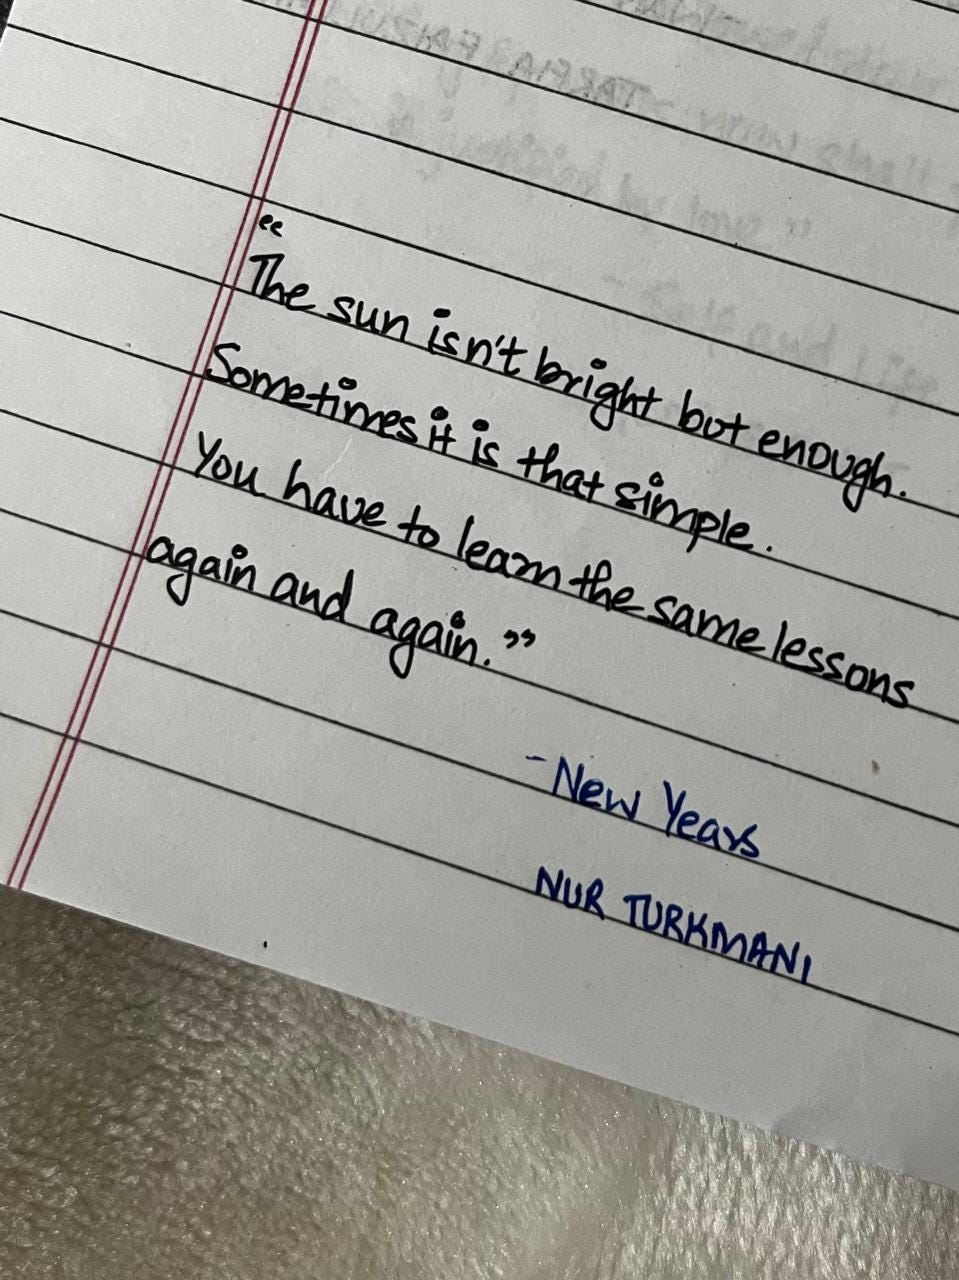 “
The sun isn't bright but enough.
Sometimes it is that simple.
You have to learn the same lessons
again and again.”
- New Years
NUR TURKMANI